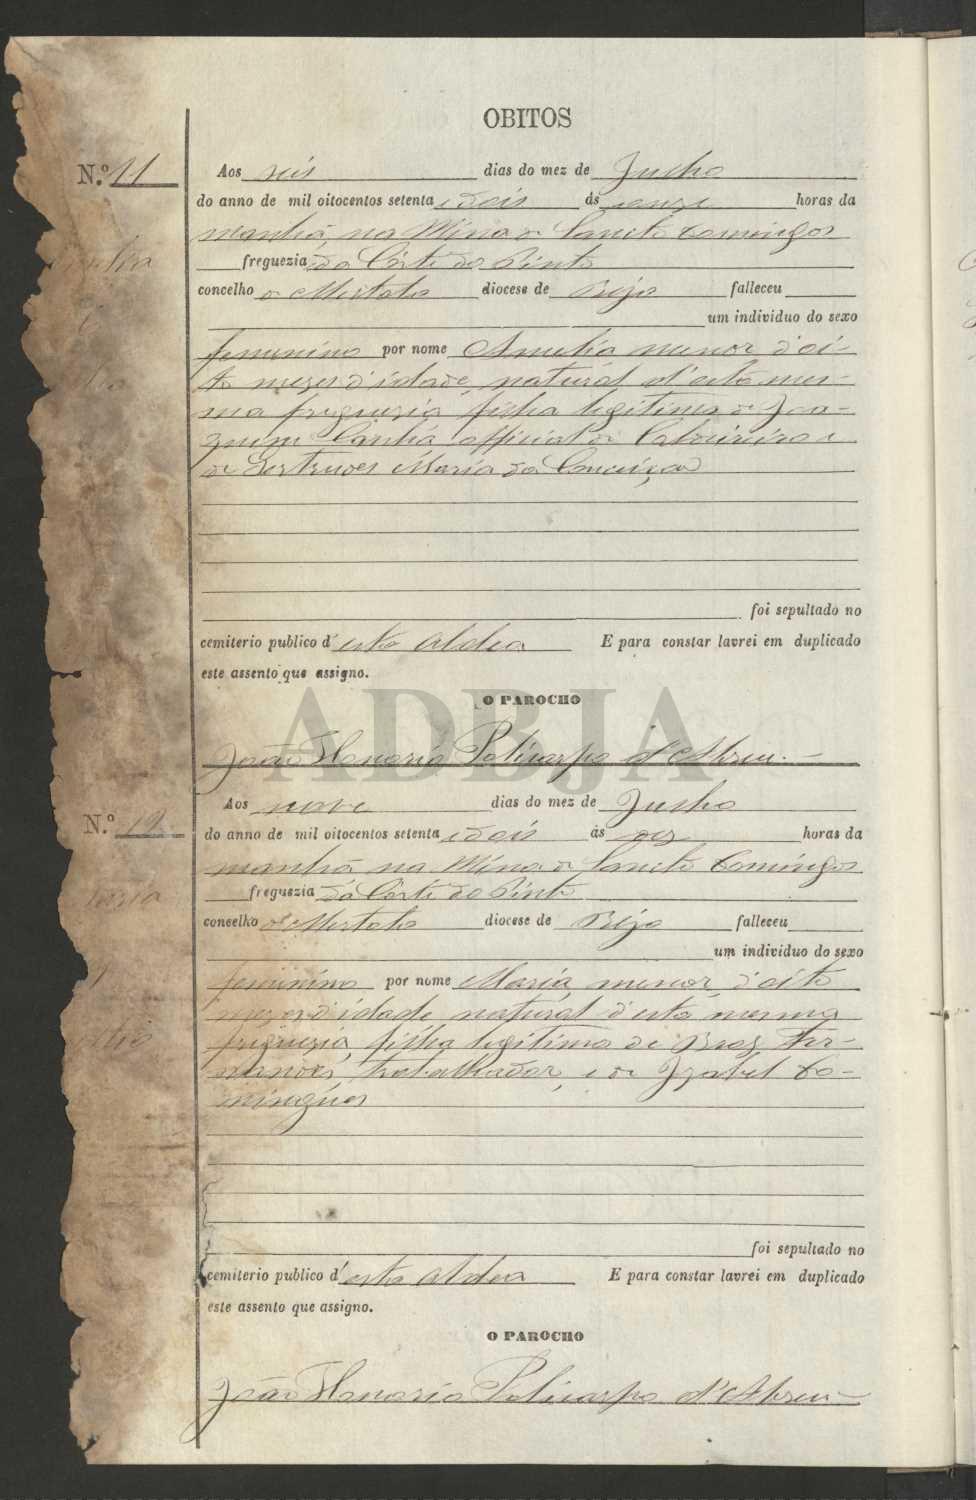 OBITOS
N.º 11
Aos seis dias do mez de Junho
do anno de mil oitocentos setenta e dois ás onze horas da
manhã, na Mina de Sancto Domingos
freguezia da Côrte do Pinto
concelho de Mertola diocese de Beja falleceu
um individuo do sexo
femenino por nome Amelia menor d'oi-
to mezes d'idade, natural d'esta mes-
ma freguezia, filha legitima de Joa-
quim official de Caldeireiro e
de Gertrudes Maria da Conceição
foi sepultado no
cemiterio publico d'esta Aldea E para constar lavrei em duplicado
este assento que assigno.
O PAROCHO
ADBJA
João Honorio Policarpo d'Abreu.
N.º 12
Aos nove dias do mez de Junho
do anno de mil oitocentos setenta e dois ás dez horas da
manhã na Mina de Sancto Domingos
freguezia da Côrte do Pinto
concelho de Mertola diocese de Beja falleceu
um individuo do sexo
femenino por nome Maria, menor, d'oito
mezes d'idade, natural d'esta mesma
freguezia, filha legitima de Braz Fer-
nandes, trabalhador, e de Izabel Do-
mingues
foi sepultado no
cemiterio publico d'esta Aldea E para constar lavrei em duplicado
este assento que assigno.
O PAROCHO
João Honorio Policarpo d'Abreu